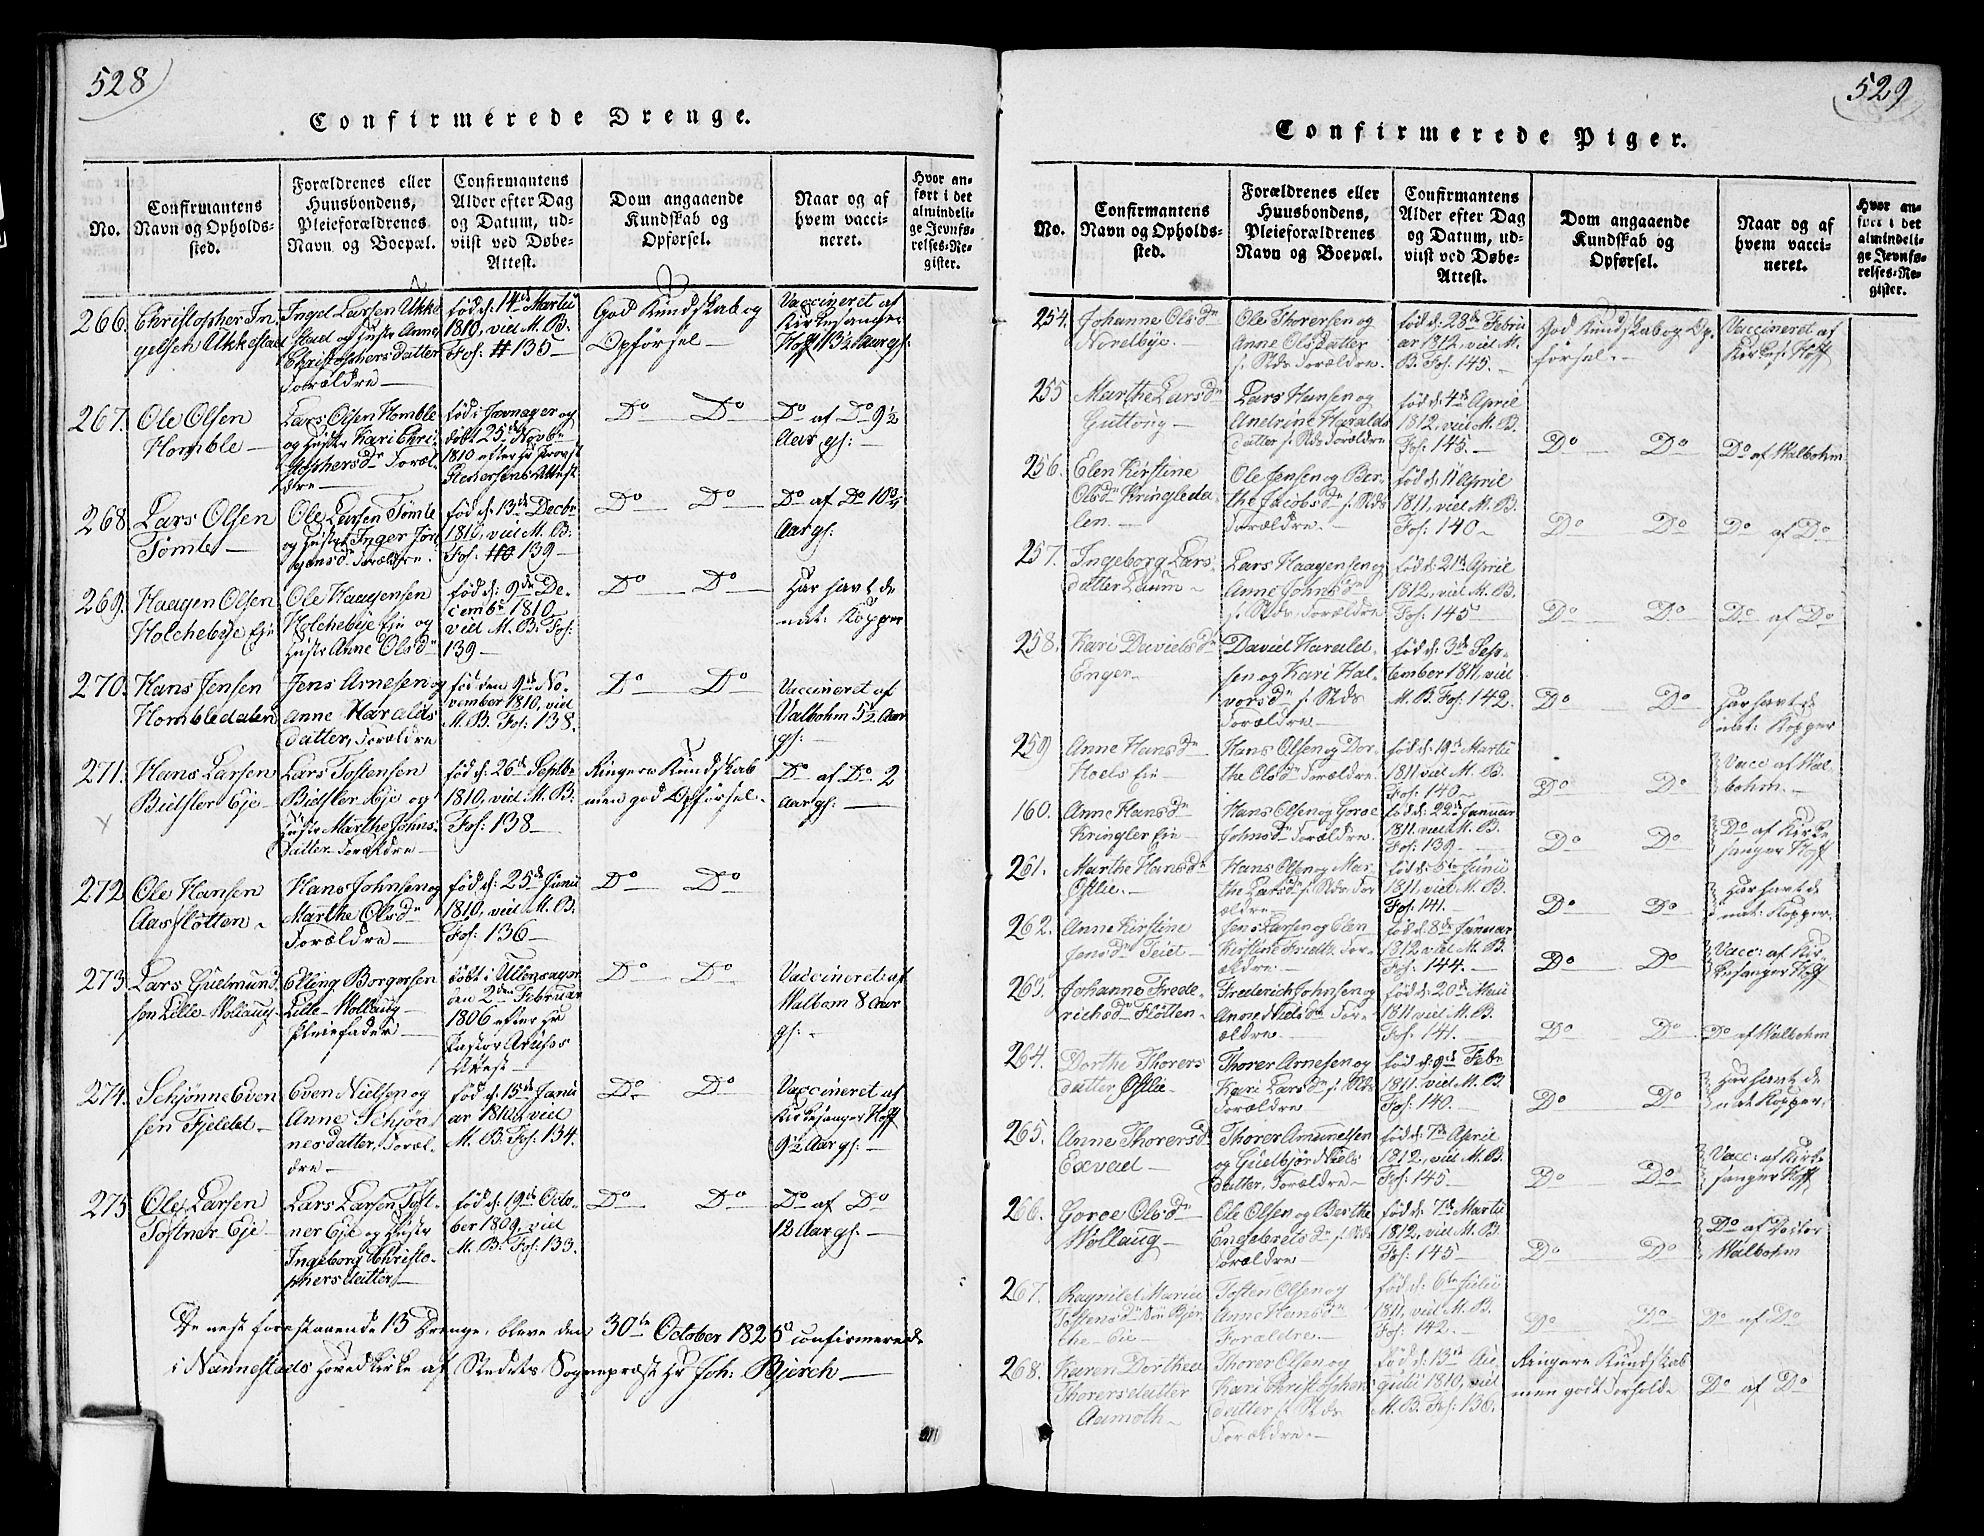 528
Confirmerede Drenge.
No.
Confirmantens
Navn og Opholds-
sted.
Forældrenes eller
Huusbondens,
Pleieforældrenes
Navn og Boepæl.
Confirmantens
Alder efter Dag
og Datum, ud-
viist ved Døbe-
Attest.
Dom angaaende
Kundskab og
Opførsel.
Naar og af
hvem vacci-
neret.
Hvor an-
ført i det
almindeli-
ge Jevnfø-
relses-Re-
gister.
266.
Christopher In-
gelsen Ukkestad
Ingel Larsen Ukke
stad og Hustr Anne
Christophersdatter
Forældre
fød d: 14de Martii
1810, viid M. B.
Fol: 135
God Kundskab og
Opførsel
Vaccineret af
Kirkesanger
Hoff 13½ Aar gl:
267.
Ole Olsen
Homble
Lars Olsen Homble
og Hustr Kari Chri-
stophersdr Foræl-
dre
fød i Jevnager og
døbt 25de Novbr
1810 efter Hr Provst
Pedersens Attest
Do Do
Do af Do 9½
Aar gl:
268.
Lars Olsen
Tømte
Ole Larsen Tømte
og Hustr Inger Jør-
gensdr Forældre.
fød d: 13de Decbr
1810, viid M. B.
Fol: 139
Do Do
Do af Do 10¾
Aar gl:
269.
Haagen Olsen
Holchebye Eje
Ole Haagensen
Holchebye Eje og
Hustr Anne Olsdr
fød d: 9de De-
cembr 1810
viid M. B. Fol:
139
Do Do
Har havt de
nat: Kopper
270.
Hans Jensen
Hombledalen
Jens Arnesen og
Anne Haralds
datter, Forældre
fød den 9de No-
vember 1810, viid
M. B. Fol: 138.
Do Do
Vaccineret af
Walbohm 5½ Aar
gl:
271.
Hans Larsen
Bidsler Eje
Lars Tostensen
Bidsler Eje og
Hustr Marthe Johns-
datter Forældre
fød d: 26de Septbr
1810, viid M. B.
Fol: 138
Ringere Kundskab
men god Opførsel.
Do af Do 2
Aar gl:
272
Ole Hansen
Aasfløtten
Hans Johnsen og
Marthe Olsdr
Forældre
fød d: 25de Junii
1810, viid M. B.
Fol: 136
Do Do
273
Lars Gudmund-
sen Lille-Wollaug
Elling Borgersen
Lille-Wollaug
Pleiefader
døbt i Ullensager
den 2den Februar
1806 efter Hr
Pastor Arups
Attest
Do Do
Vaccineret af
Walbom 8 Aar
gl:
274.
Schjønne Even
sen Fjeldet
Even Nielsen og
Anne Schjøn-
nesdatter, Foræl-
dre
fød d: 15de Janu
ar 1810, viid
M. B. Fol: 134.
Do Do
Vaccineret af
Kirkesanger Hoff
9½ Aar gl:
275
Ole Larsen
Tostner Eje
Lars Larsen Tost-
ner Eje og Hustr
Ingeborg Christo-
phersdatter,
fød d: 19de Octo-
ber 1809, viid
M. B. Fol: 133.
Do Do
Do af Do
12 Aar gl:
De nest forestaaende 13 Drenge, bleve den 30te October 1825 confirmerede
i Nannestads Hovedkirke af Stedets Sogneprest Hr Joh: Bjerch
529
Confirmerede Piger.
No.
Confirmantens
Navn og Opholds-
sted.
Forældrenes eller
Huusbondens,
Pleieforældrenes
Navn og Boepæl.
Confirmantens
Alder efter Dag
og Datum, ud-
viist ved Døbe-
Attest.
Dom angaaende
Kundskab og
Opførsel.
Naar og af
hvem vacci-
neret.
Hvor an-
ført i det
almindeli-
ge Jevnfø-
relses-Re-
gister.
254.
Johanne Olsdr
Nordbye.
Ole Thoresen og
Anne Olsdatter
s. Stds Forældre.
fød d: 28de Febru
ar 1812, viid M.
B. Fol. 145.
God Kundskab og Op-
førsel.
Vaccineret af
Kirkes: Hoff
255
Marthe Larsdr
Guttorig
Lars Hansen og
Anedrine Haralds
datter s. Stds Forældre
fød d: 4de April
1812, viid M. B.
Fol: 145.
Do Do
Do af Walbohm
256.
Elen Kirstine
Olsdr Kringleda-
len.
Ole Jensen og Ber-
the Jacobsdr s. Stds
Forældre.
fød d: 11 April
1811, viid M. B.
Fol: 140
Do Do
Do af Do
257.
Ingeborg Lars-
datter Laum
Lars Haagensen og
Anne Johnsdr
s. Stds, Forældre
fød d: 21de April
1812, viid M. B.
Fol: 145
Do Do
Do af Do
258.
Kari Davidsdr
Enger
David Harald-
sen og Kari Hal-
vorsdr s. Stds
Forældre
fød d: 3de Sep-
tember 1811, viid
M. B. Fol: 142.
Do Do
Har havt de
nat: Kopper
259
Anne Hansdr
Hoels Eie
Hans Olsen og Dor-
the Olsdr Forældre.
fød d: 19de Martii
1811, viid M. B.
Fol: 140
Do Do
Vacc af Wal-
bohm.
160.
Anne Hansdr
Kringler Eie
Hans Olsen og Goroe
Johnsdr Forældre.
fød d: 22de Januar
1811, viid M. B.
Fol: 139.
Do Do
Do af Kirke-
sanger Hoff
261.
Marthe Hansdr
Østlie.
Hans Olsen og Mar-
the Larsdr s. Stds For
ældre
fød d: 5te Junii
1811, viid M. B.
Fol: 141.
Do Do
Har havt de
nat: Kopper.
262.
Anne Kirstine
Jensdr Teiet
Jens Larsen og Elen
Kirstine For-
ældre
fød d: 8de Januar
1812, viid M. B.
Fol: 144.
Do Do
Vacc: af Kir-
kesanger Hoff
263.
Johanne Frede-
richsdr Fløtten
Frederich Johnsen og
Anne Nielsdr For-
ældre.
fød d: 20de Maii
1811, viid M. B.
Fol: 141.
Do Do
Do af Walbohm
264.
Dorthe Thorers
datter Østlie
Thorer Arnesen og
Kari Larsdr s. Stds
Forældre
fød d: 9de Febr
1811, viid M. B.
Fol: 140.
Do Do
Har havt de
nat: Kopper.
265.
Anne Thorersdr
Exvad
Thorer Amundsen
og Gudbjør Niels
datter, Forældre
fød d: 7de April
1812, viid M. B.
Fol: 145
Do Do
Vacc: af Kirke-
sanger Hoff
266.
Goroe Olsdr
Wollaug
Ole Olsen og Berthe
Engebretsdr s. Stds
Forældre
fød d: 7de Martii
1812, viid M. B.
Fol: 145
Do Do
Do af Doctor
Walbohm
267.
Ragnild Maria
Tostensdr Bjer-
che Eie
Tosten Olsen og
Anne Hansdr
Forældre
fød d: 6te Julii
1811, viid M. B.
Fol: 142.
Do Do
Do af Do
268.
Karen Dorthea
Thorersdatter
Aamoth
Thorer Olsen og
Kari Christophers
datter s. Stds
Forældre.
fød d: 13de Au
gusti 1810, viid
M. B. Fol: 136.
Ringere Kundskab
men godt Forhold
Do af Do